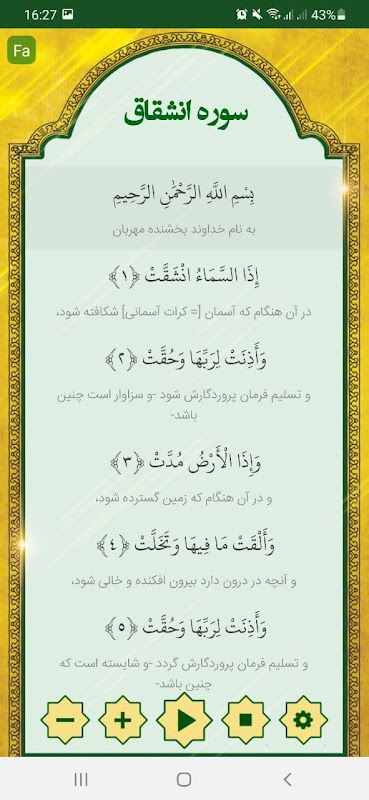 16:27
43%
Fa
سوره انشقاق
بِسْمِ اللَّهِ الرَّحْمَٰنِ الرَّحِيمِ
به نام خداوند بخشنده مهربان
إِذَا السَّمَاءُ انْشَقَّتْ ﴿١﴾
در آن هنگام که آسمان [= کرات آسمانی] شکافته شود،
وَأَذِنَتْ لِرَبِّهَا وَحُقَّتْ ﴿٢﴾
و تسلیم فرمان پروردگارش شود -و سزاوار است چنین
باشد-
وَإِذَا الْأَرْضُ مُدَّتْ ﴿٣﴾
و در آن هنگام که زمین گسترده شود،
وَأَلْقَتْ مَا فِيهَا وَتَخَلَّتْ ﴿٤﴾
و آنچه در درون دارد بیرون افکنده و خالی شود،
وَأَذِنَتْ لِرَبِّهَا وَحُقَّتْ ﴿٥﴾
و تسلیم فرمان پروردگارش گردد -و شایسته است که
چنین باشد-